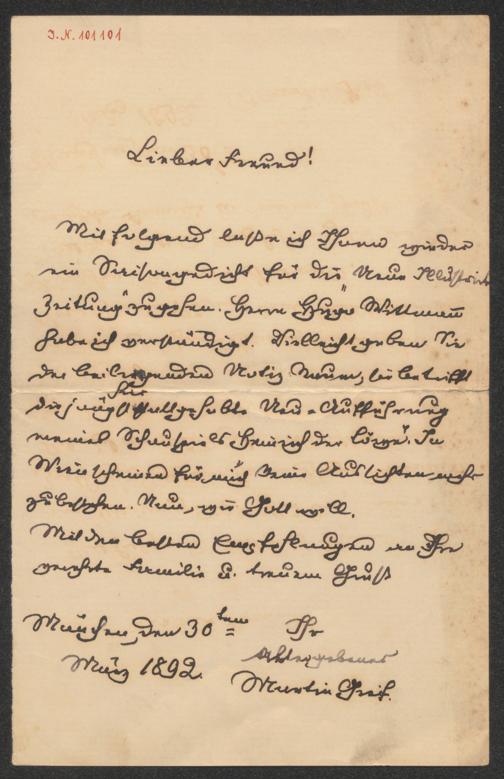 J.N. 101101
Lieber Freund!
Mitfolgend lasse ich Ihnen wieder
ein Saisongedicht für die „Neue Illustrirte
Zeitung" zugehen. Herrn Hugo Wittmann
habe ich verständigt. Vielleicht geben Sie
der beiliegenden Notiz Raum, sie betrifft
die jüngst hier stattgehabte Neu-Aufführung
meines Schauspiels „Heinrich der Löwe". In
Wien scheinen für mich keine Aussichten mehr
zu bestehen. Nun, wie Gott will.
Mit den besten Empfehlungen an Ihre
geehrte Familie u. treuem Gruß
München, den 30ten Ihr
altergebener
März 1892. Martin Greif.